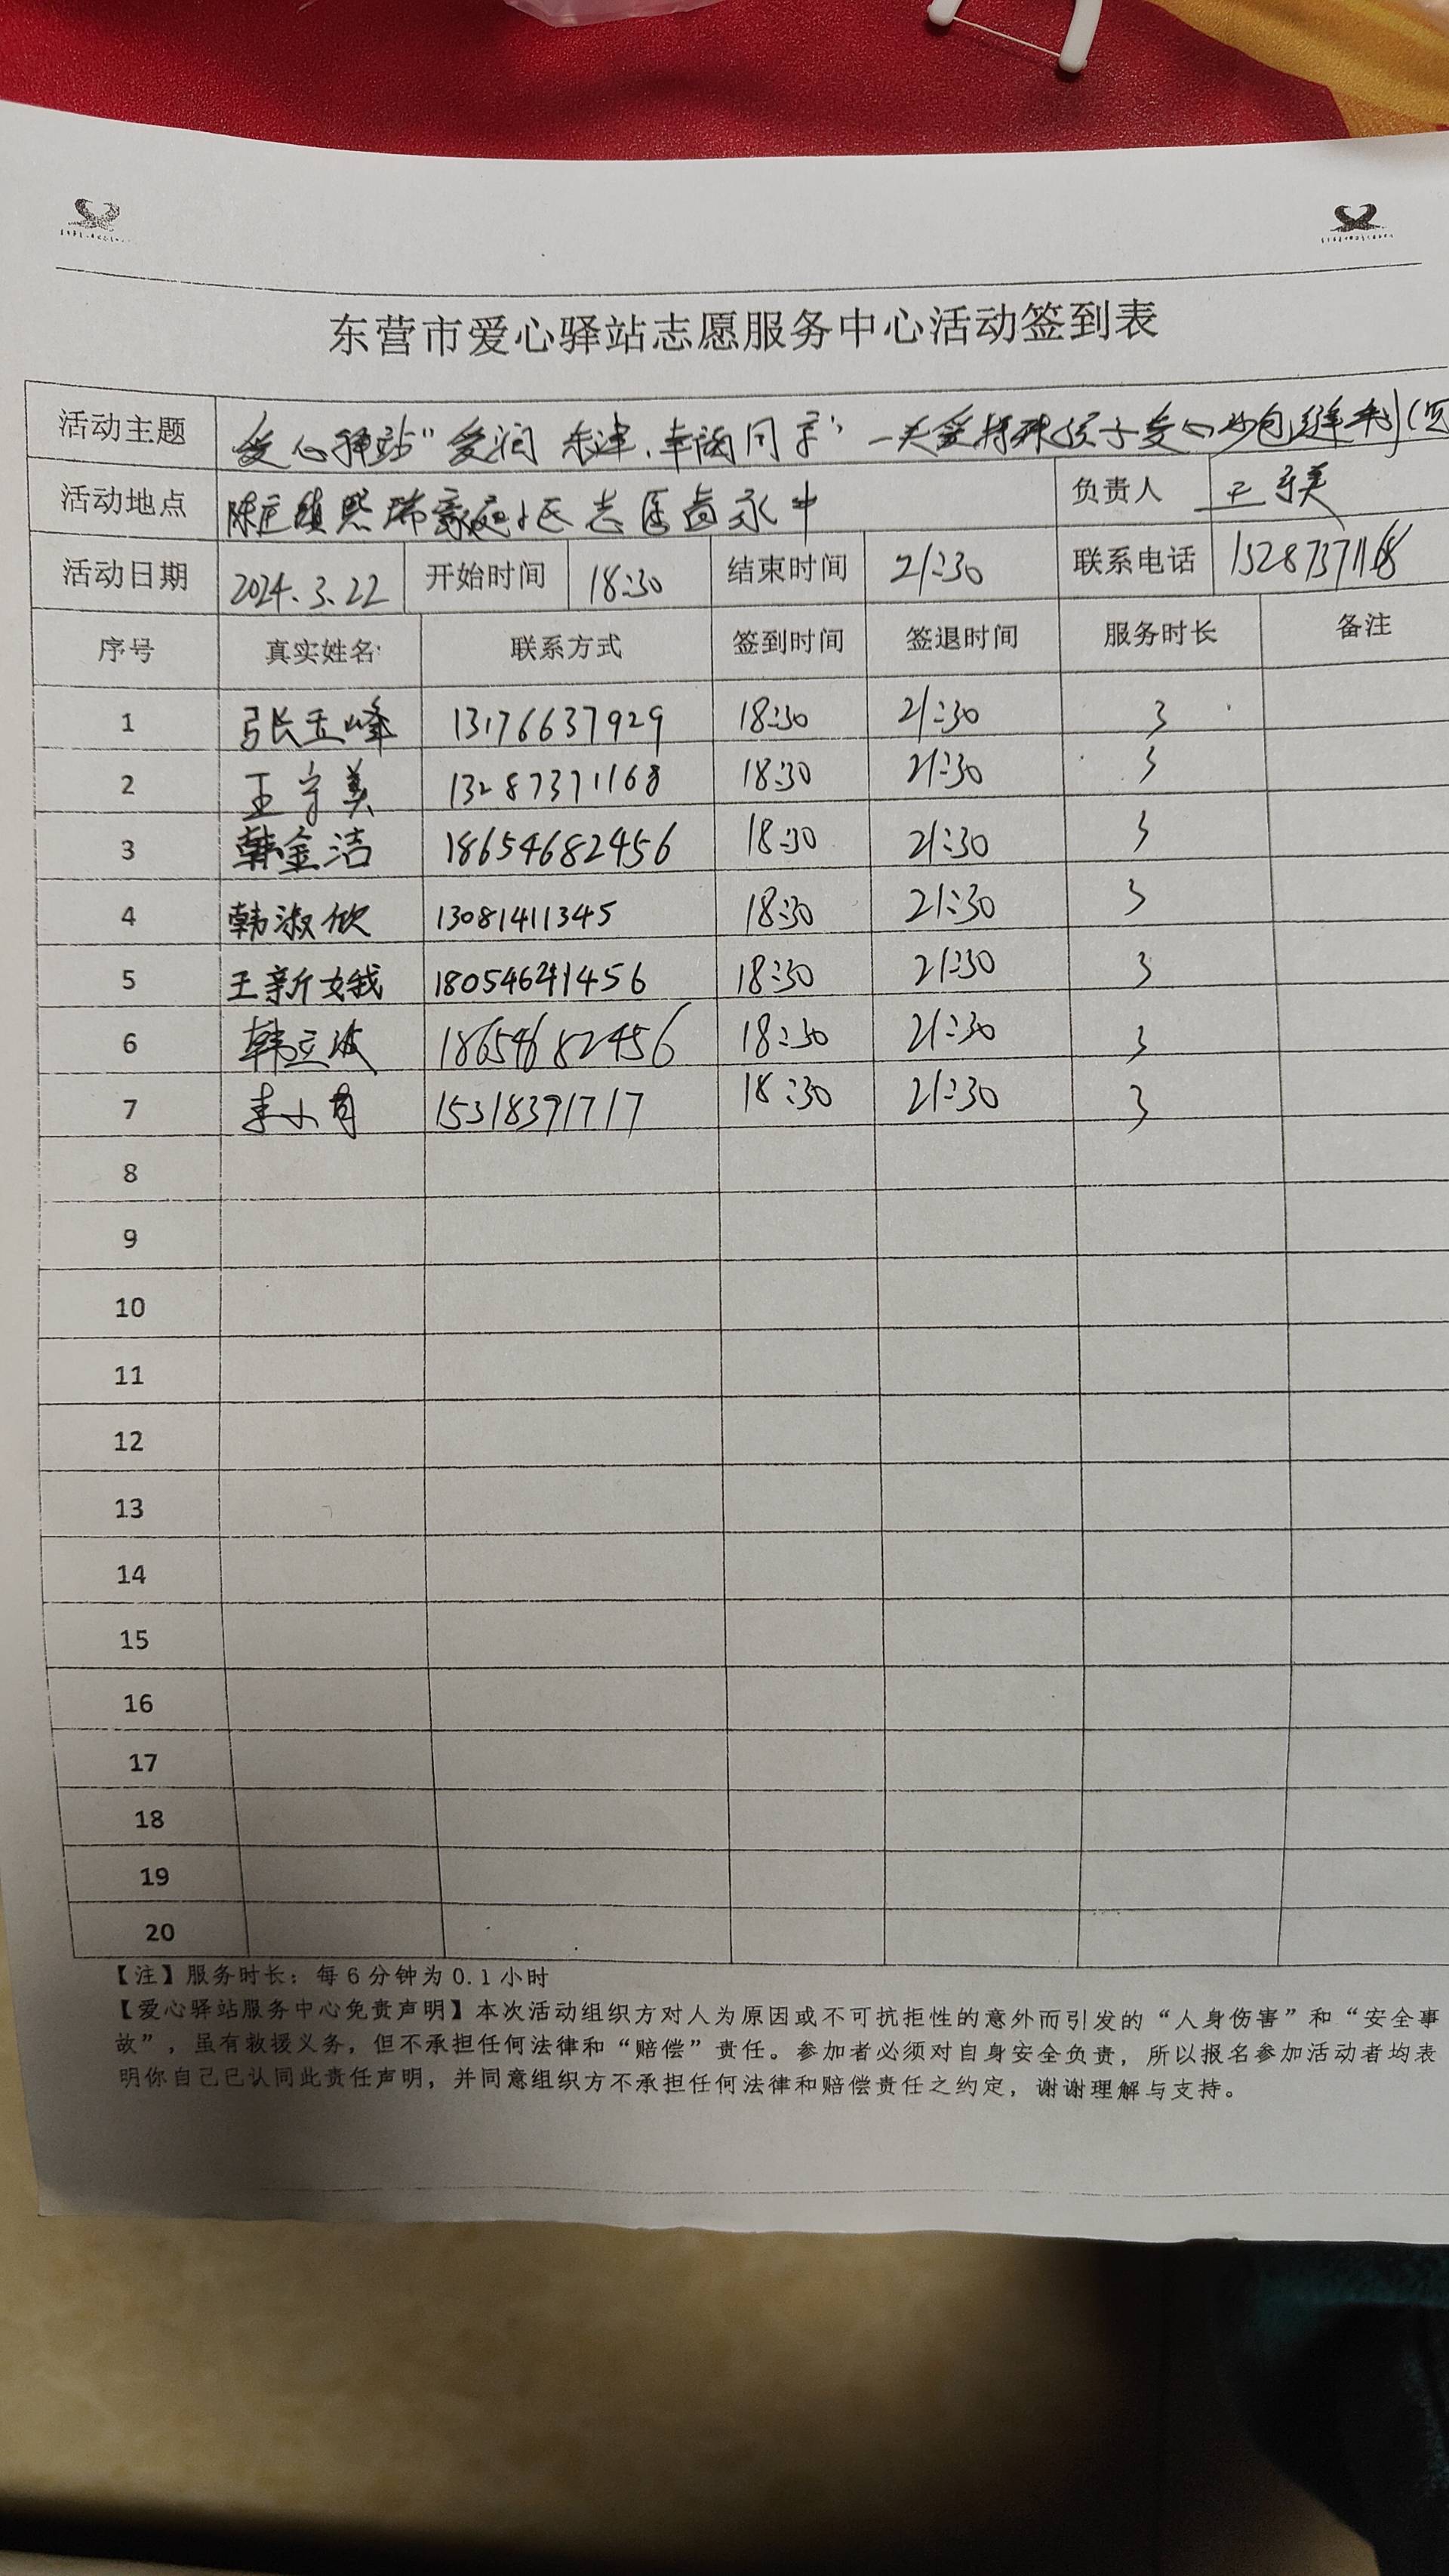 东营市爱心驿站志愿服务中心活动签到表
活动主题 爱心驿站"爱润东津、幸福同享"—关爱特殊孩子爱心沙包缝制(
活动地点 陈庄镇熙瑞豪庭小区 负责人 王守美
活动日期 2024.3.22 开始时间 18:30 结束时间 21:30 联系电话 13287371168
序号 真实姓名 联系方式 签到时间 签退时间 服务时长 备注
1 张玉峰 13176637929 18:30 21:30 3
2 王守美 13287371168 18:30 21:30 3
3 韩金洁 18654682456 18:30 21:30 3
4 韩淑欣 13081411345 18:30 21:30 3
5 王新娥 18054641456 18:30 21:30 3
6 韩立波 18654682456 18:30 21:30 3
7 李小 15318391717 18:30 21:30 3
8
9
10
11
12
13
14
15
16
17
18
19
20
【注】服务时长：每6分钟为0.1小时
【爱心驿站服务中心免责声明】本次活动组织方对人为原因或不可抗拒性的意外而引发的“人身伤害”和“安全事
故”，虽有救援义务，但不承担任何法律和“赔偿”责任。参加者必须对自身安全负责，所以报名参加活动者均表
明你自己已认同此责任声明，并同意组织方不承担任何法律和赔偿责任之约定，谢谢理解与支持。